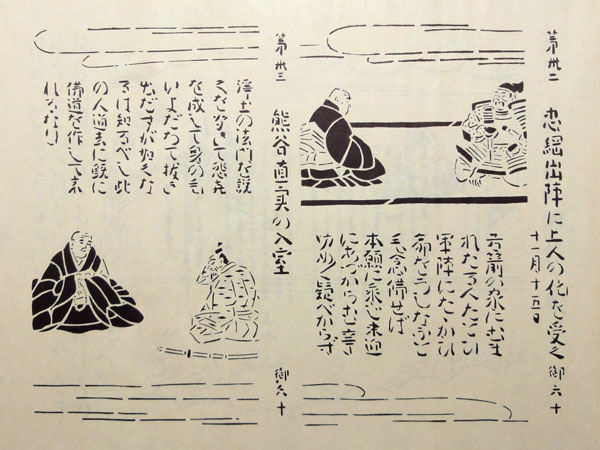 第卅二 忠綱出陣に上人の化を受く 御六十
十一月十五日
弓箭の家にむま
れたる人たとひ
軍陣にたゝかひ
命をうしなふと
も念佛せば
本願に乗じ来迎
にあづからむこと
ゆめ〱疑べからず
第卅三 熊谷直実の入室 御六十
浄土の法門を説
くをきいて悲喜
を成して身の毛
いよだちて抜き
出だすが如くな
らば知るべし此
の人過去に既に
佛道を作して来
れるなり